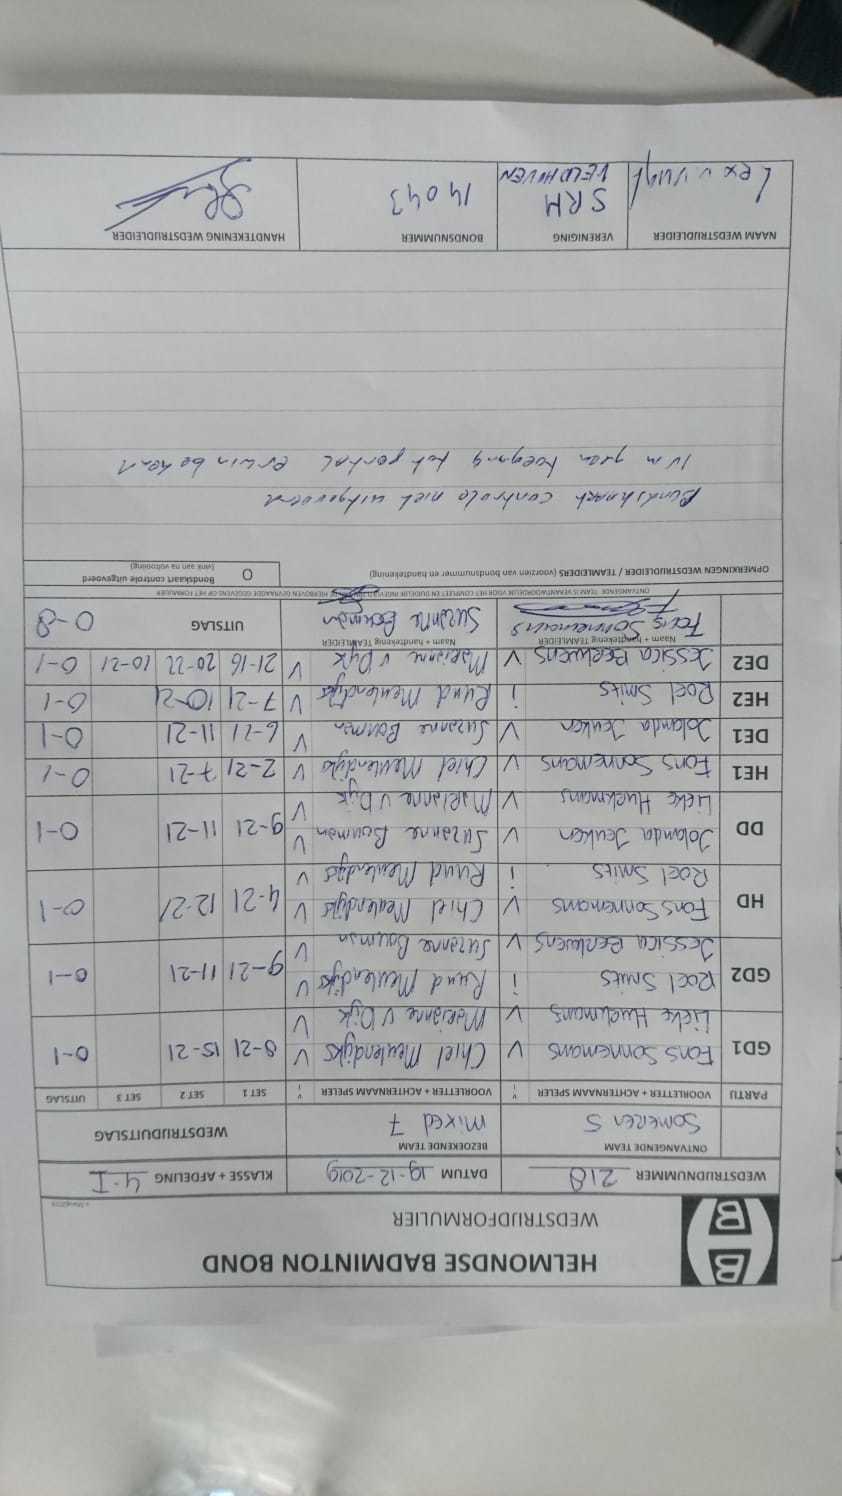 HELMONDSE BADMINTON BOND
WEDSTRIJDFORMULIER
WEDSTRIJDNUMMER 218 DATUM 19-12-2019 KLASSE + AFDELING 4-I
ONTVANGENDE TEAM BEZOEKENDE TEAM WEDSTRIJDUITSLAG
Someren 5 Mixed 7
PARTIJ VOORLETTER + ACHTERNAAM SPELER VOORLETTER + ACHTERNAAM SPELER SET 1 SET 2 SET 3 UITSLAG
GD1 Fons Sonnemans V Chiel Meulendijks V 8-21 15-21 0-1
Lieke Huckmans V Marianne v Dijk V
GD2 Roel Smits i Ruud Meulendijks V 9-21 11-21 0-1
Jessica Beerkens V Suzanne Bouman V
HD Fons Sonnemans V Chiel Meulendijks V 4-21 12-21 0-1
Roel Smits i Ruud Meulendijks V
DD Jolanda Jeuken V Suzanne Bouman V 9-21 11-21 0-1
Lieke Huckmans V Marianne v Dijk V
HE1 Fons Sonnemans V Chiel Meulendijks V 2-21 7-21 0-1
DE1 Jolanda Jeuken V Suzanne Bouman V 6-21 11-21 0-1
HE2 Roel Smits i Ruud Meulendijks V 7-21 10-21 0-1
DE2 Jessica Beerkens V Marianne v Dijk V 21-16 20-22 10-21 0-1
Naam + handtekening TEAMLEIDER Naam + handtekening TEAMLEIDER UITSLAG 0-8
Fons Sonnemans Suzanne Bouman
ONTVANGENDE TEAM IS VERANTWOORDELIJK VOOR HET COMPLEET EN DUIDELIJK INVULLEN HIERBOVEN GEVRAAGDE GEGEVENS OP HET FORMULIER
OPMERKINGEN WEDSTRIJDLEIDER / TEAMLEIDERS (voorzien van bondsnummer en handtekening) O Bondskaart controle uitgevoerd
(vink aan na voltooiing)
Bondskaart controle niet uitgevoerd
ivm geen toegang tot portal erwin bekend
NAAM WEDSTRIJDLEIDER VERENIGING BONDSNUMMER HANDTEKENING WEDSTRIJDLEIDER
Lex SRH 14043
VELDHOVEN